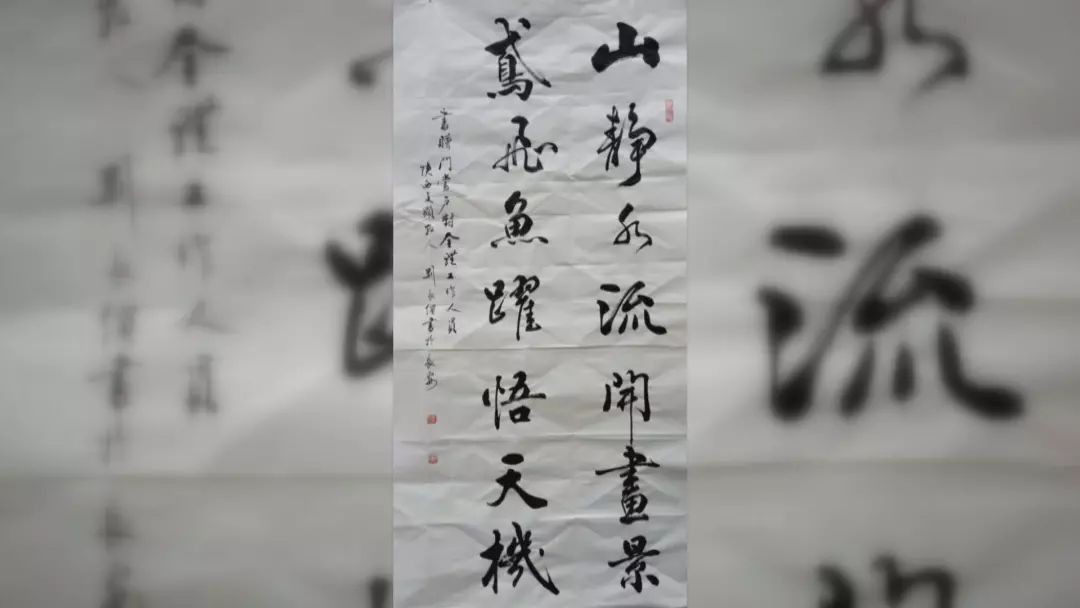 山静水流開畫景
鳶飛魚躍悟天機
書贈門室户對全體工作人員
陕西文頌 人劉 書於長安